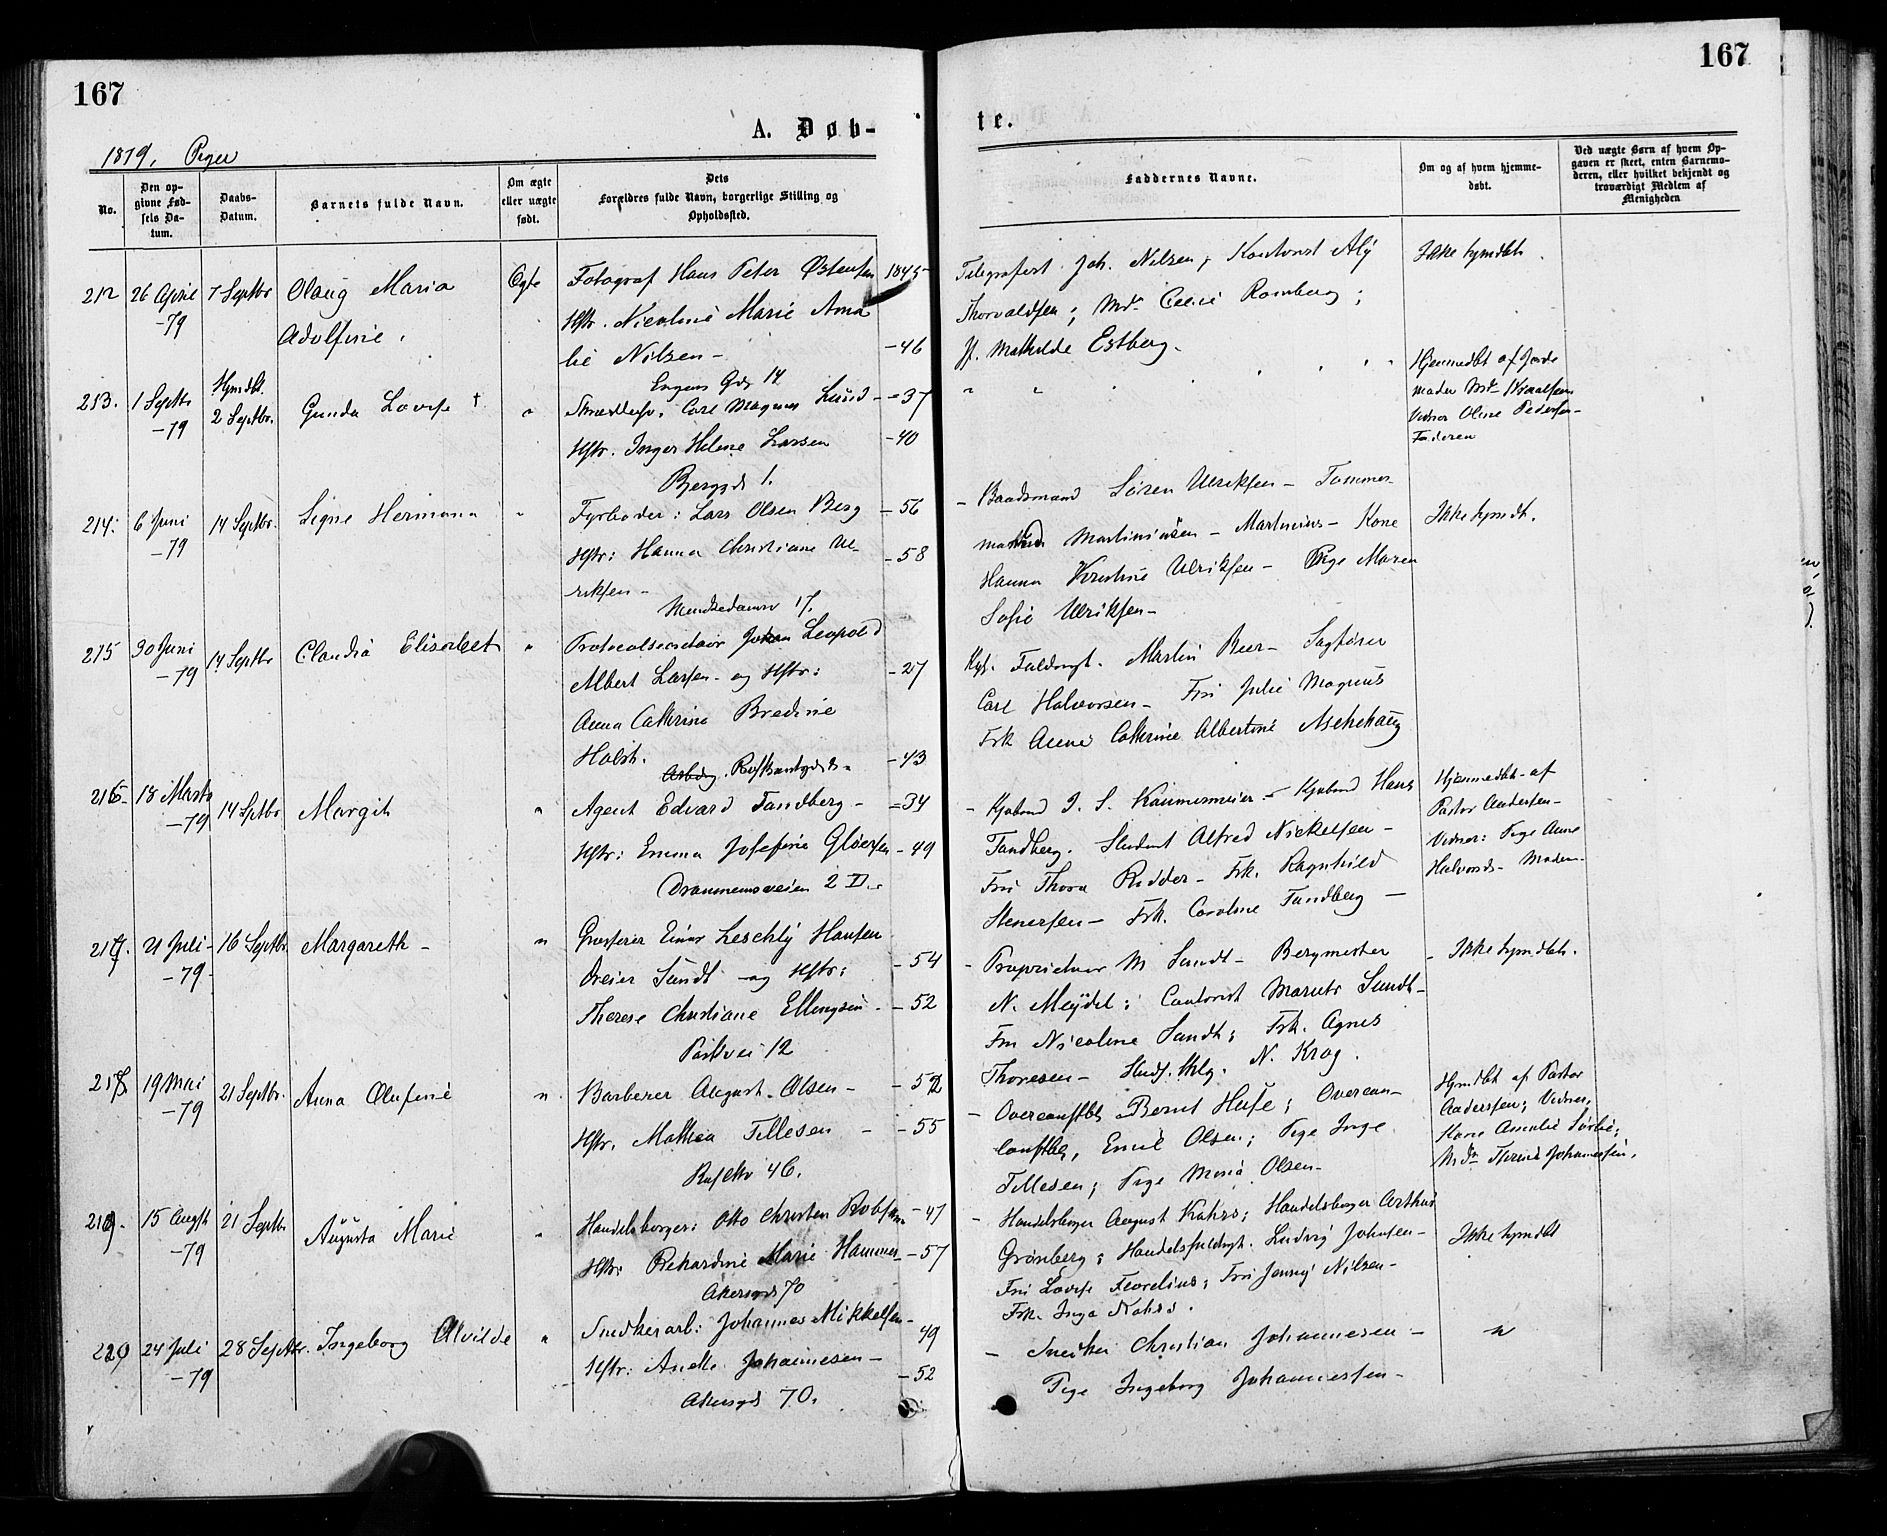 167
167
A. Døb-
te.
1879, Piger
No.
Den op-
givne Fød-
sels Da-
tum.
Daabs-
Datum.
Barnets fulde Navn.
Om ægte
eller uægte
født.
Dets
Forældres fulde Navn, borgerlige Stilling og
Opholdssted.
Faddernes Navne.
Om og af hvem hjemme-
døbt.
Ved uægte Børn af hvem Op-
gaven er skeet, enten Barnemo-
deren, eller hvilket bekjendt og
troværdigt Medlem af
Menigheden
212 26 April 7 Septbr Olaug Maria Egte Fotograf Hans Peter Østensen 1845
-79 Adolfine. Hstr. Nicoline Marie Ama
lie Nilsen - -46
Telegrafist Joh. Nilsen, Kontorist Alf
Thorvaldsen; Md. Cecie Romberg;
Jf. Mathilde Estberg.
Ikke hjmdbt.
Engens Gd. 14
213. 1 Septbr Hjmdbt. Gunda Lovise † " Carl Magnus Lund - -37
-79 2 Septbr. Hstr. Inger Helene Larsen -40
" "
Hjemmedbt af Jorde
moder
Vidner Oline Pedersen -
Faderen
Berggd. 1.
214. 6 Juni 14 Septbr. Signe Hermana " Fyrbøder: Lars Olsen Berg -56
-79 Hstr: Hanna Christiane Ul- -58
riksen -
- Baadsmand Søren Ulriksen - Tømmer-
mand Martinius - Kone
Hanna Kristine Ulriksen - Pige Maren
Sofie Ulriksen -
Ikke hjmdt.
Munkedamsv 17.
215 30 Juni 14 Septbr Claudia Elisabet " Protocolsecretair Johan Leopold
-79 Albert Larsen - og Hstr: -27
Anna Cathrina Bredine
Holst. -43
Kgl. Fuldmgt. Martin Beer - Sagfører
Carl Halvorsen - Fru Julie Magnus
Frk Anne Cathrine Albertine Aschehoug
216 18 Marts 14 Sptbr Margit " Agent Edvard Tandberg - -34
-79 Hstr: Emma Josefine Gløersen -49
Drammensveien 2 D.
- Kjøbmd J. S. - Kjøbmd Hans
Tandberg. Student Alfred Nickelsen -
Fru Thora Ridder - Frk. Ragnhild
Stenersen - Frk. Caroline Tandberg -
Hjemmedbt - af
Pastor Andersen -
Vidner: Pige Anne
Halvords - Moder -
217. 21 Juli - 16 Septbr. Margareth - " Grosserer Einar Leschly Hansen
-79 - Dreier Sundt - og Hstr: -54
Therese Christiane Ellingsen - -52
Parkvei 12
- Proprietær M Sundt - Bergmester
N. Mejdel; Contorist Marits Sundt -
Fru Nicoline Sundt; Frk. Agnes
Thoresen - Stud. N. Krog.
- Ikke hjmdbt.
218. 19 Mai 21 Septbr. Anna Olufine " Barberer August Olsen - -52
-79 Hstr. Mathea Tellesen - -55
46.
- Bernt Huse; Overcon-
Emil Olsen; Pige Inge
Tellesen; Pige Maria Olsen -
Hjmdbt af Pastor
Andersen; Vidner,
Kone Amalie Sørlie;
Johannesen.
219. 15 Augst 21 Septbr Augusta Marie " Handelsborger: Otto Christen Robsam -47
-79 Hstr: Rikardine Marie Hammer -57
Akersgd 70
- Handelsborger August Kahrs; Handelsborger Arthur
Grønberg; Handelsfuldmgt. Ludvig Johnsen -
Fru Lovise Florelius; Fru Jenny Nilsen -
Frk. Inga Kahrs.
Ikke hjmdbt
220 24 Juli 28 Septbr. Ingeborg Alvilde " Snedkerarb: Johannes Mikkelsen - 49
-79 Hstr: Anette Johannesen - -52
Akersgd 70.
- Snedker Christian Johannesen -
Pige Ingeborg Johannessen -
"